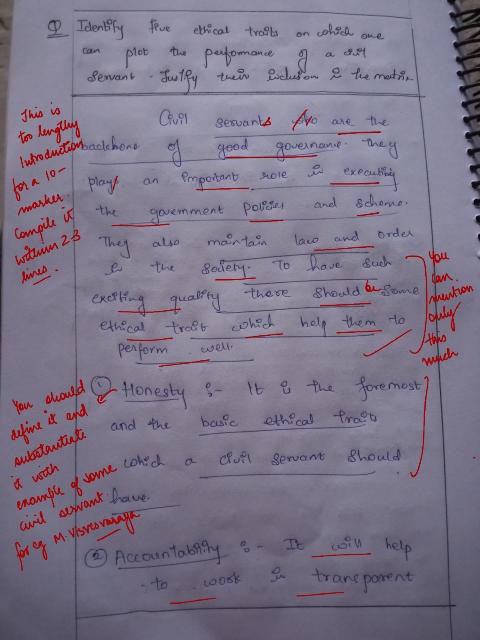 Q Identify five ethical traits on which one
can plot the performance of a civil
Servant. Justify their inclusion in the matrix
This is
too lengthy
Introduction
for a 10-
marker.
Compile it
within 2-3
lines.
Civil servants who are the
backbone of good governance. They
plays an important role in executing
the government policies and scheme.
They also maintain law and order
in the society. To have such
exciting quality there should be some
ethical trait which help them to
perform well.
You
can
mention
only
this
much
① Honesty :- It is the foremost
and the basic ethical trait
which a civil servant should
have.
You should
define it and
substantiate
it with
example of some
civil servant
for eg M. Visvesvaraya
② Accountability :- It will help
to work in transparent